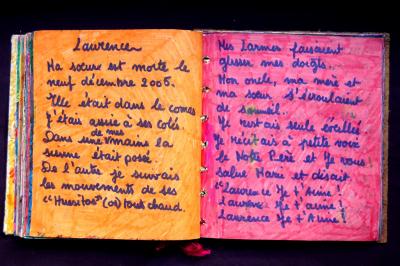 Laurence
Ma sœur est morte le
neuf décembre 2005.
Elle était dans le coma
J'étais assise à ses cotés.
Dans une de mes mains la
sienne était posée.
De l'autre je suivais
les mouvements de ses
"Huesitos" (os) tout chaud.
Mes larmes faisaient
glisser mes doigts..
Mon oncle, ma mère et
ma sœur s'écroulaient
de sommeil.
Je restais seule éveillée
Je récitais à petite voix
le Notre Père et Je vous
salue Marie et disait
"Laurence Je t'Aime!
Laurence Je t'aime!
Laurence Je t'Aime!